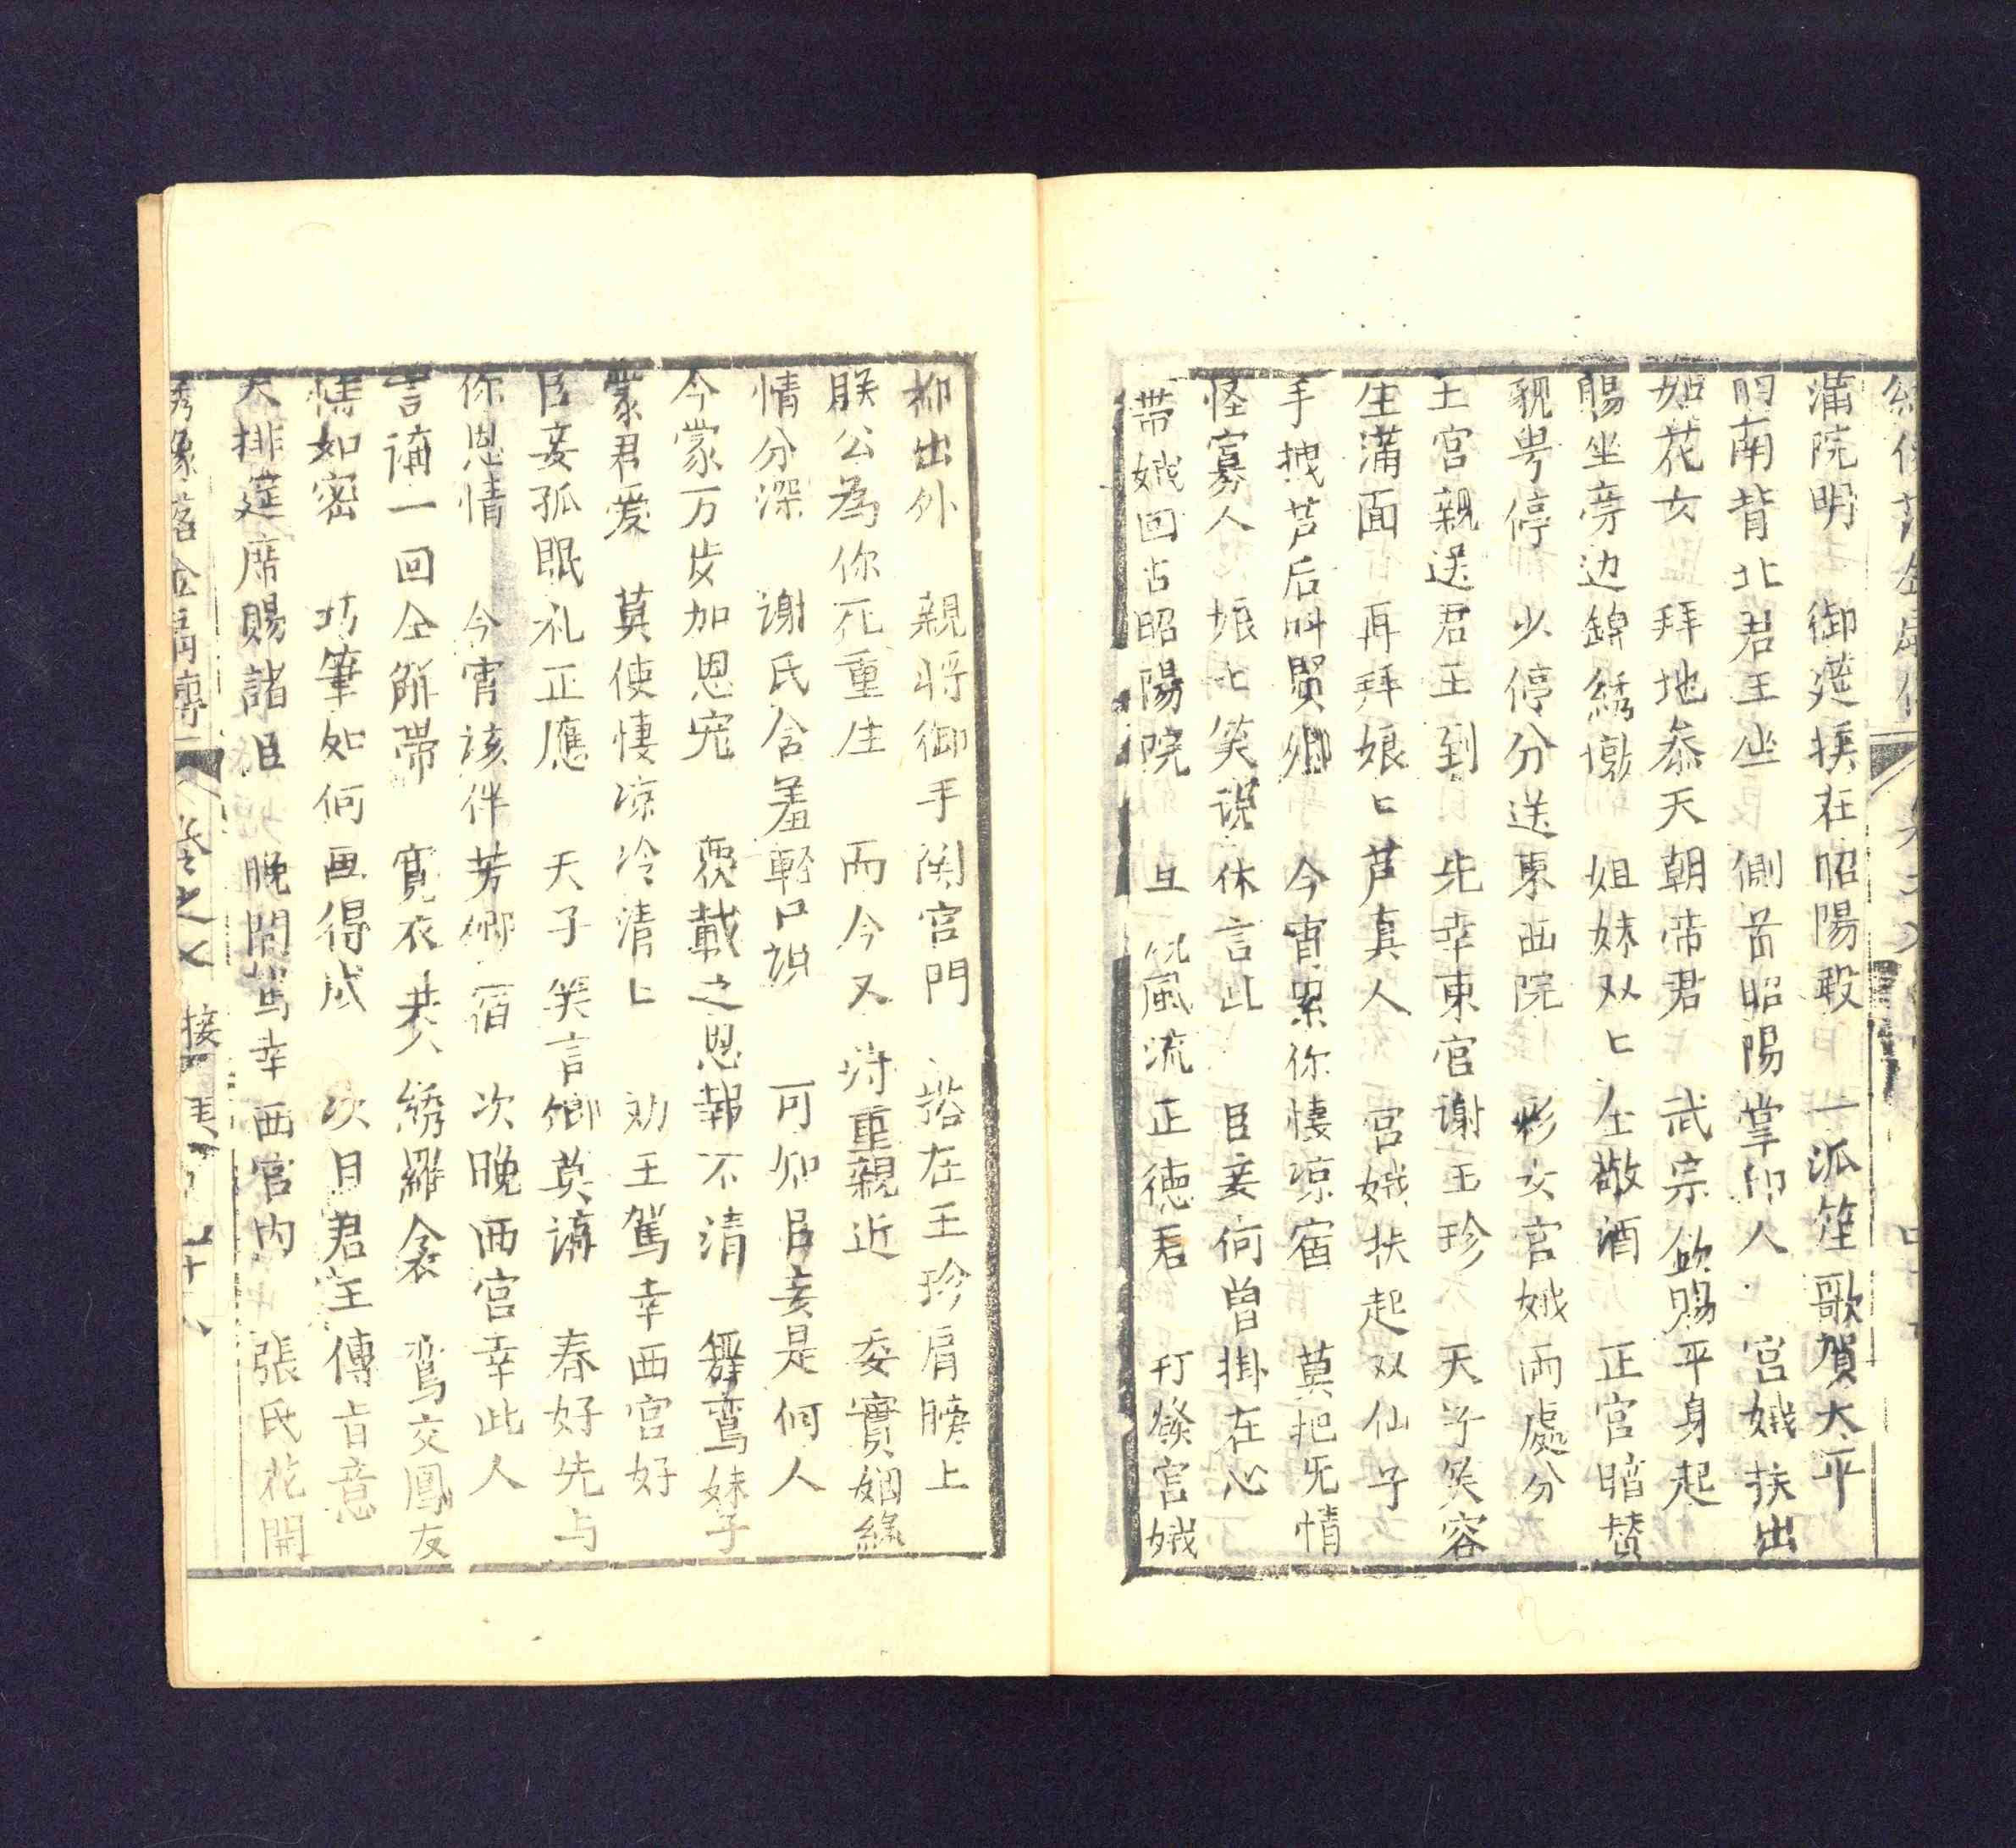 滿院明　御筵擺在昭陽殿　一派笙歌賀太平
朝南背北君王坐　側首昭陽掌印人　宮娥扶出
如花女　拜地叅天朝帝君　武宗欽賜平身起
賜坐旁边錦綉墩　姐妹双匕仝敬酒　正宮暗賛
貌㖾停　少停分送東西院　彩女宮娥両處分
王宮親送君王到　先幸東宮谢玉珍　天子笑容
生滿面　再拜娘匕芦真人　宮娥扶起双仙子
手拽芦后呌賢卿　今宵累你悽凉宿　莫把无情
怪寡人　娘匕笑说休言此　臣妾何曾掛在心
帶娥回占昭陽院　且　風流正德君　打發宮娥
出外　親将御手関宮門　搭在玉珍肩膀上
朕公為你死重生　而今又　重親近　委實姻緣
情分深　谢氏含羞輕口説　可知臣妾是何人
今蒙万歩加恩宠　覆載之恩報不清　舞鸞妹子
蒙君爱　莫使悽凉冷清匕　劝王駕幸西宮好
臣妾孤眠礼正應　天子笑言卿莫講　春好先与
你恩情　今宵該伴芳卿宿　次晚西宮幸此人
言講一回仝觧帶　寛衣共入綉羅衾　鸾交鳳友
情如密　巧筆如何画得成　次日君王傳旨意
大排筵席賜諸臣　晚間駕幸西宮内　張氏花開
綉像落金扇傳　卷之七　接